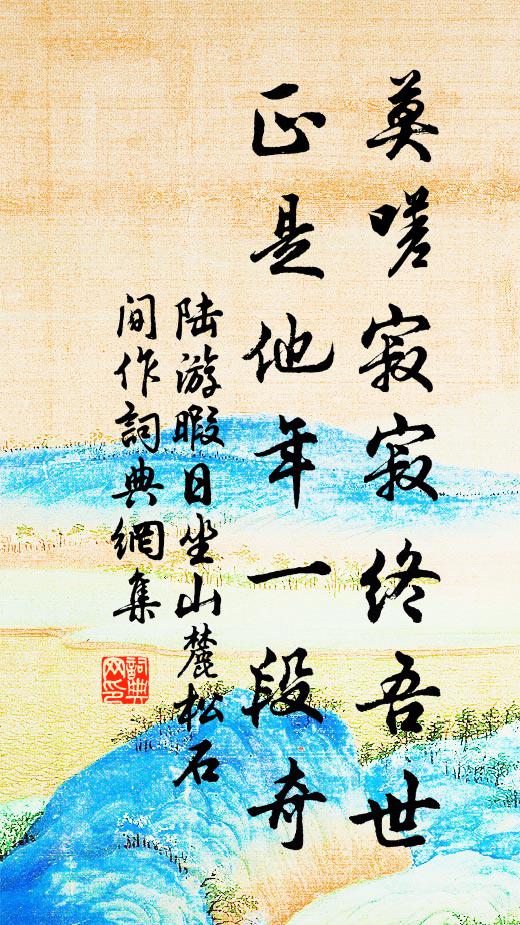 莫嗟寂寂終吾世
正是他年一段奇
陸游暇日坐山麓松石
間作詞典網集
詞典
网印